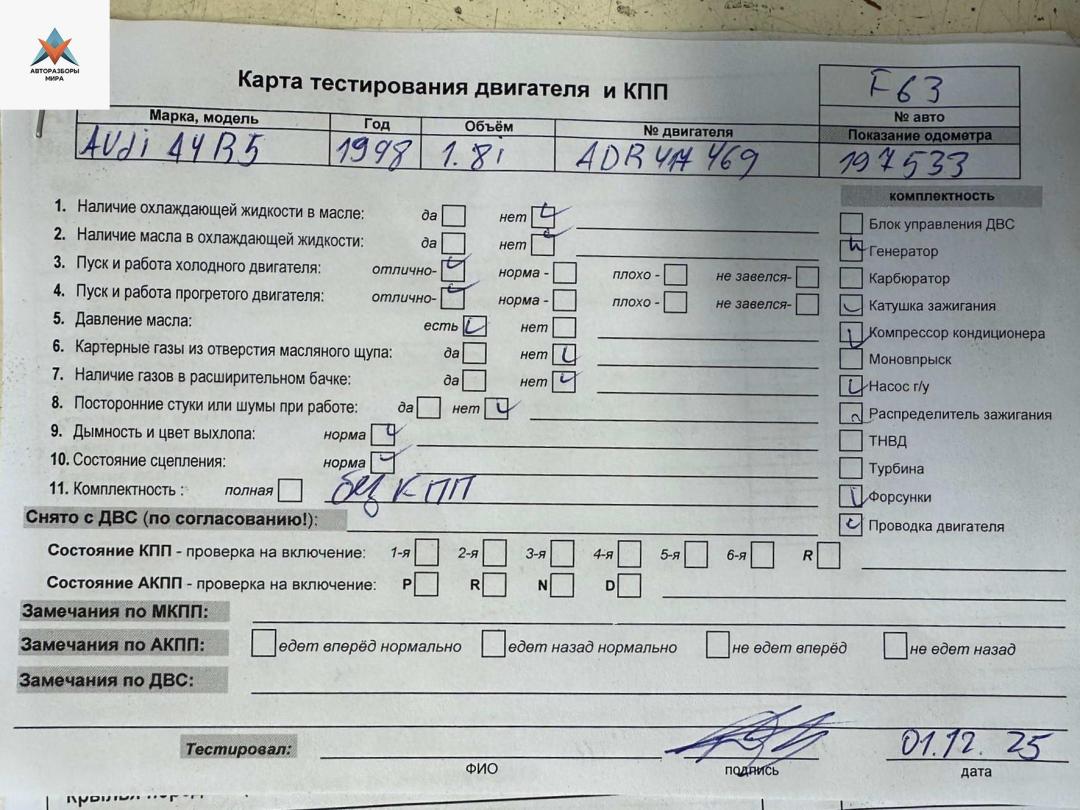 АВТОРАЗБОРЫ
МИРА
Карта тестирования двигателя и КПП
F63
№ авто
Марка, модель Год Объём № двигателя Показание одометра
AUdi A4 B5 1998 1.8i ADR 417 469 197533
комплектность
1. Наличие охлаждающей жидкости в масле: да нет
Блок управления ДВС
2. Наличие масла в охлаждающей жидкости: да нет
Генератор
3. Пуск и работа холодного двигателя: отлично- норма - плохо - не завелся-
Карбюратор
4. Пуск и работа прогретого двигателя: отлично- норма - плохо - не завелся-
Катушка зажигания
5. Давление масла: есть нет
Компрессор кондиционера
6. Картерные газы из отверстия масляного щупа: да нет
Моновпрыск
7. Наличие газов в расширительном бачке: да нет
Насос г/у
8. Посторонние стуки или шумы при работе: да нет
Распределитель зажигания
9. Дымность и цвет выхлопа: норма
ТНВД
10. Состояние сцепления: норма
Турбина
11. Комплектность : полная без КПП
Форсунки
Снято с ДВС (по согласованию!):
Проводка двигателя
Состояние КПП - проверка на включение: 1-я 2-я 3-я 4-я 5-я 6-я R
Состояние АКПП - проверка на включение: P R N D
Замечания по МКПП:
Замечания по АКПП: едет вперёд нормально едет назад нормально не едет вперёд не едет назад
Замечания по ДВС:
Тестировал: 01.12.25
ФИО подпись дата